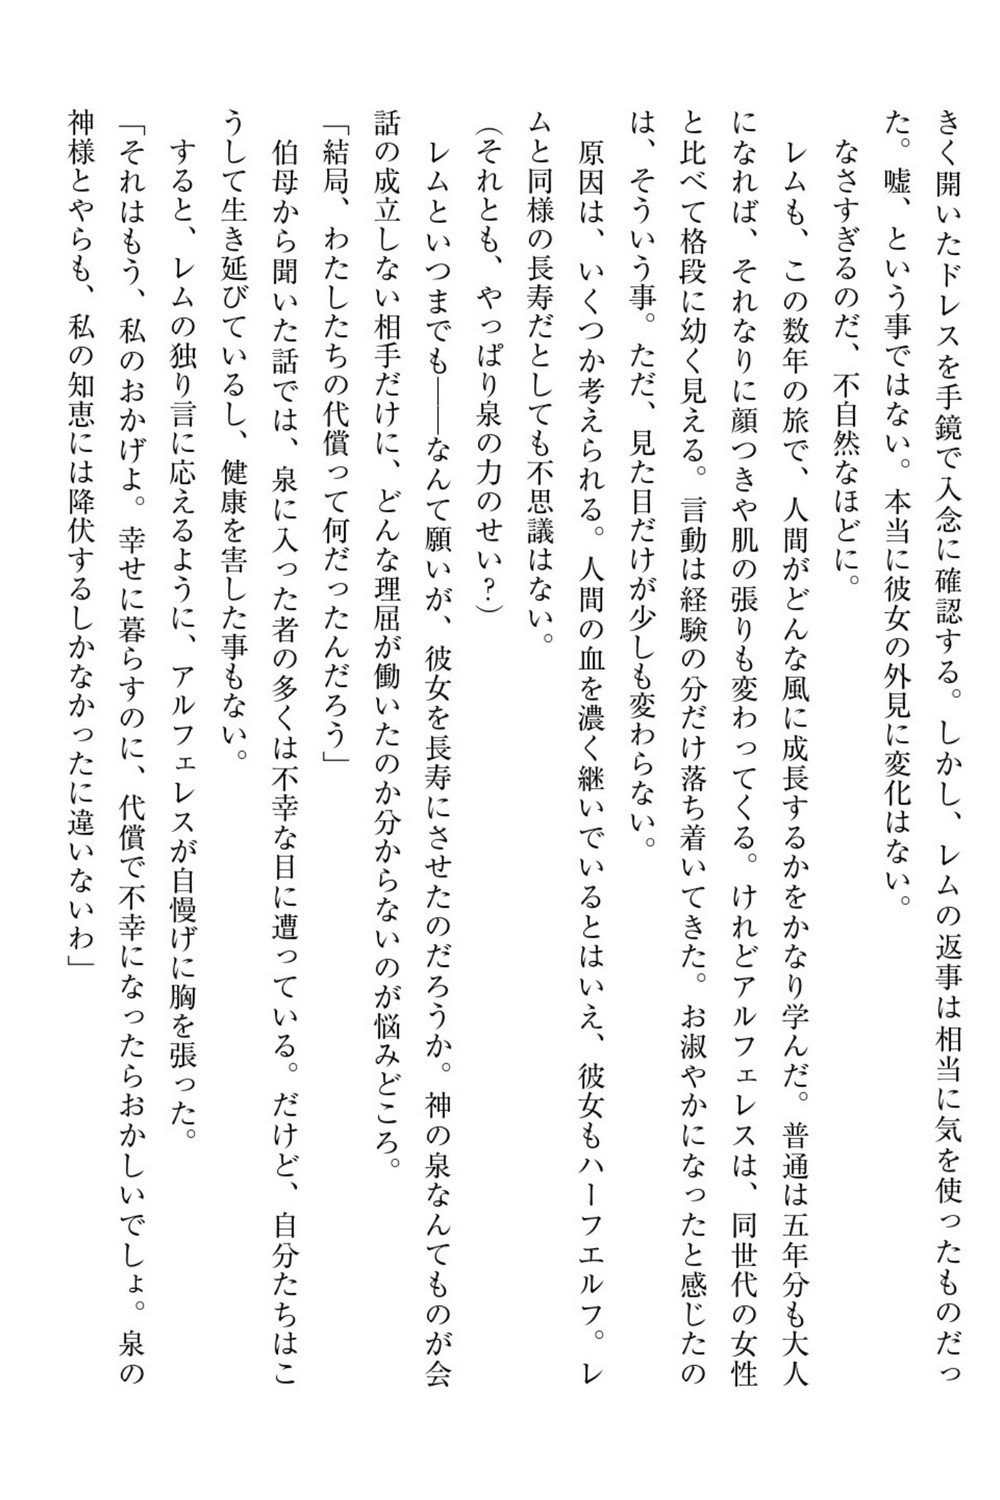 きく開いたドレスを手鏡で入念に確認する。しかし、レムの返事は相当に気を使ったものだっ
た。嘘、という事ではない。本当に彼女の外見に変化はない。
なさすぎるのだ、不自然なほどに。
レムも、この数年の旅で、人間がどんな風に成長するかをかなり学んだ。普通は五年分も大人
になれば、それなりに顔つきや肌の張りも変わってくる。けれどアルフェレスは、同世代の女性
と比べて格段に幼く見える。言動は経験の分だけ落ち着いてきた。お淑やかになったと感じたの
は、そういう事。ただ、見た目だけが少しも変わらない。
原因は、いくつか考えられる。人間の血を濃く継いでいるとはいえ、彼女もハーフエルフ。レ
ムと同様の長寿だとしても不思議はない。
（それとも、やっぱり泉の力のせい？）
レムといつまでも――なんて願いが、彼女を長寿にさせたのだろうか。神の泉なんてものが会
話の成立しない相手だけに、どんな理屈が働いたのか分からないのが悩みどころ。
「結局、わたしたちの代償って何だったんだろう」
伯母から聞いた話では、泉に入った者の多くは不幸な目に遭っている。だけど、自分たちはこ
うして生き延びているし、健康を害した事もない。
すると、レムの独り言に応えるように、アルフェレスが自慢げに胸を張った。
「それはもう、私のおかげよ。幸せに暮らすのに、代償で不幸になったらおかしいでしょ。泉の
神様とやらも、私の知恵には降伏するしかなかったに違いないわ」